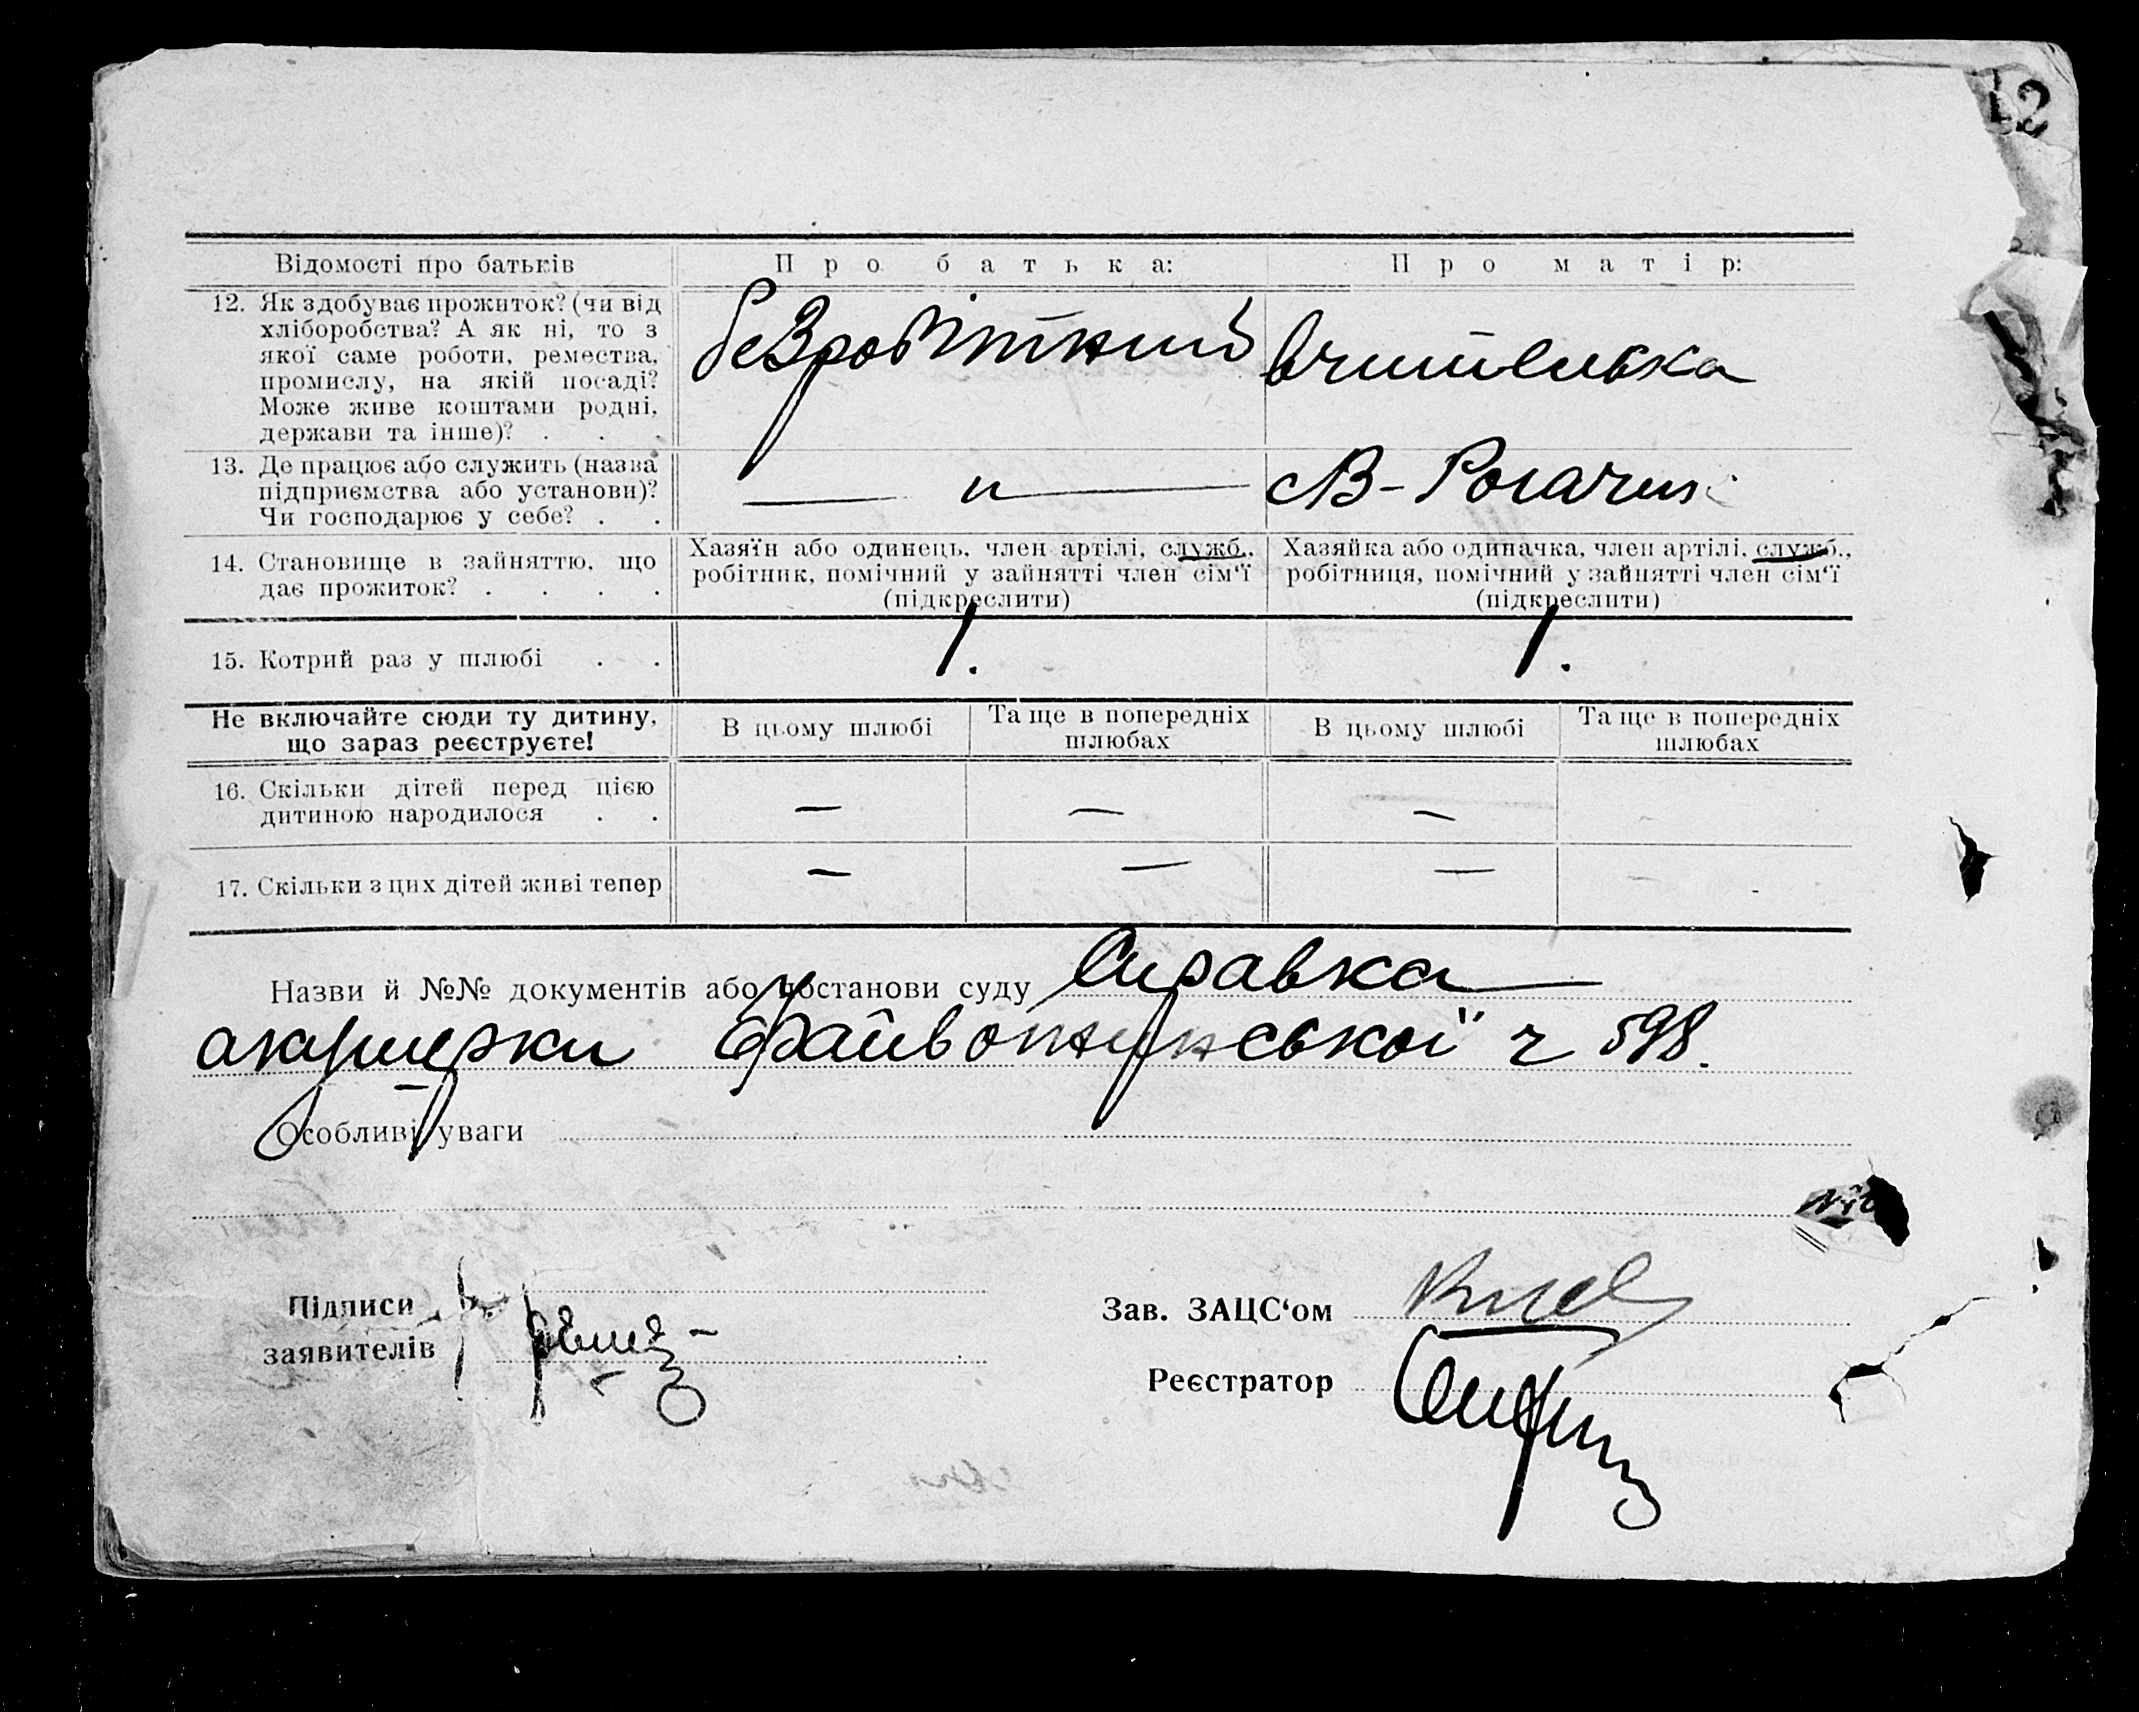 12
Відомості про батьків
Про батька:
Про матір:
12. Як здобуває прожиток? (чи від
хліборобства? А як ні, то з
якої саме роботи, ремества,
промислу, на якій посаді?
Може живе коштами родні,
держави та інше)? . . .
безробітний
вчителька
13. Де працює або служить (назва
підприємства або установи)?
Чи господарює у себе? . .
— „ —
В-Рогачик
14. Становище в зайняттю, що
дає прожиток? . . . .
Хазяїн або одинець, член артілі, служб.,
робітник, помічний у зайнятті член сім‘ї
(підкреслити)
Хазяйка або одиначка, член артілі, служб.,
робітниця, помічний у зайнятті член сім‘ї
(підкреслити)
15. Котрий раз у шлюбі . .
1.
1.
Не включайте сюди ту дитину,
що зараз реєструєте!
В цьому шлюбі
Та ще в попередніх
шлюбах
В цьому шлюбі
Та ще в попередніх
шлюбах
16. Скільки дітей перед цією
дитиною народилося . .
— — —
17. Скільки з цих дітей живі тепер
— — —
Назви й №№ документів або постанови суду Справка
акушерки ч 598.
Особливі уваги
Підписи
заявителів
Зав. ЗАЦС‘ом
Реєстратор